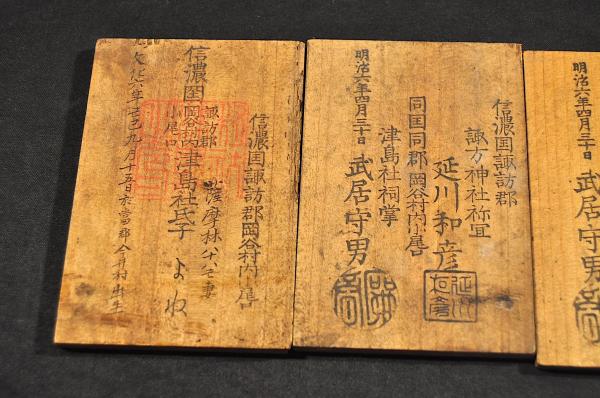 信濃国諏訪郡岡谷村内小
薩摩林
妻
信濃国
諏訪郡
岡谷
小尾口
津島社氏子 よね
六年己巳九月十五日於當郡今井村出生
信濃国諏訪郡
諏方神社祢宜
延川和彦
同国同郡岡谷村内小
津島社祠掌
武居守男
明治六年四月三十日
明治六年四月三十日
武居守男